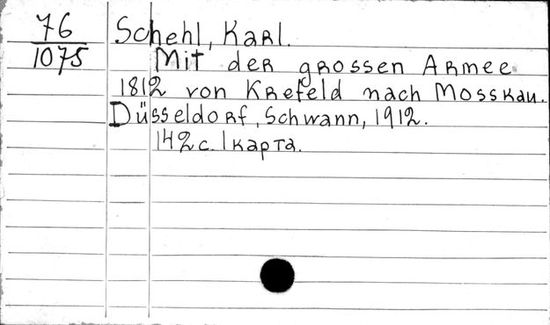 76
1075
Schehl, Karl.
Mit der grossen Armee
1812 von Krefeld nach Mosskau.
Düsseldorf, Schwann, 1912.
142 с. 1 карта.